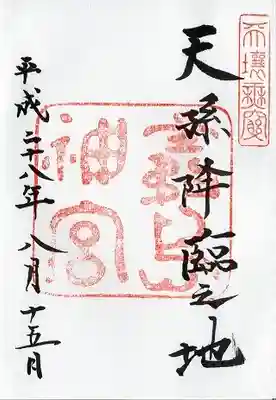 天壤無窮
天孫降臨之地
霧島
神宮
平成二十八年八月十五日